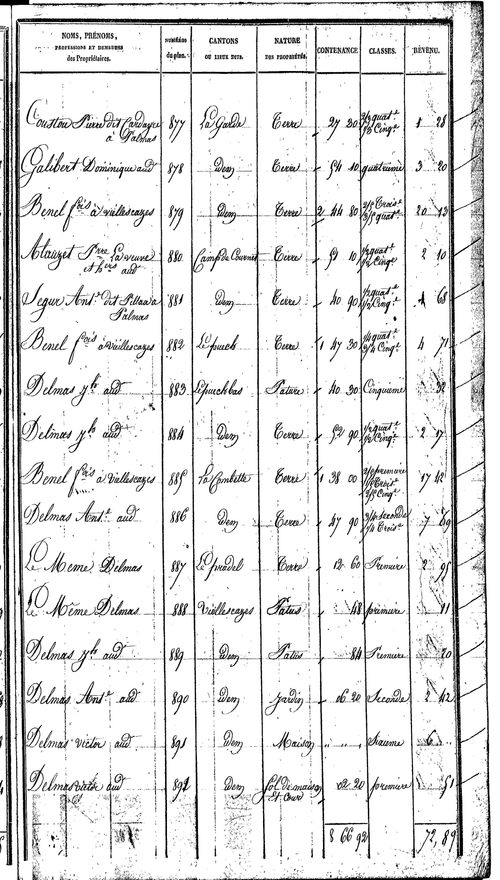 NOMS, PRÉNOMS,
PROFESSIONS ET DEMEURES
des Propriétaires.
NUMÉROS
du plan.
CANTONS
OU LIEUX DITS.
NATURE
DES PROPRIÉTÉS.
CONTENANCE
CLASSES.
REVENU.
Coustou Pierre dit Cardayre à Palmas 877 La Garde Terre 27 30 1/2 quat.e 1/2 Cinq.e 1 28
Galibert Dominique aud 878 Idem Terre 54 10 quatrieme 3 20
Benel f.ois à vieillescazes 879 Idem Terre 2 44 80 Trois.e quat.e 20 13
Alauzet P.rre La veuve et h.ers aud 880 Camp de Cournet Terre 59 10 1/2 quat.e 1/2 Cinq.e 2 10
Segur Ant.e dit Pillou à Palmas 881 Idem Terre 40 90 1/2 quat.e 1/2 Cinq.e 1 68
Benel f.ois à Vieillescazes 882 Le puech Terre 1 47 30 1/4 quat.e 3/4 Cinq.e 4 71
Delmas j.h aud 883 Le puech bas Pature 40 30 Cinquieme 32
Delmas j.h aud 884 Idem Terre 52 90 1/2 quat.e 1/2 Cinq.e 2 17
Benel f.ois à Vieillescazes 885 La Combette Terre 1 38 00 premiere Trois.e Cinq.e 17 42
Delmas Ant.e aud 886 Idem Terre 47 90 3/4 seconde 1/4 Trois.e 7 69
Le Meme Delmas 887 Le pradel Terre 12 60 Premiere 2 95
Le Même Delmas 888 Vieillescazes Patus 48 premiere 11
Delmas j.h aud 889 Idem Patus 84 Premiere 20
Delmas Ant.e aud 890 Idem Jardin 06 20 Seconde 2 42
Delmas victor aud 891 Idem Maison " " " 6 "
Delmas victor aud 892 Idem Sol de maison et Cour 02 20 premiere 51
8 66 92 72, 89